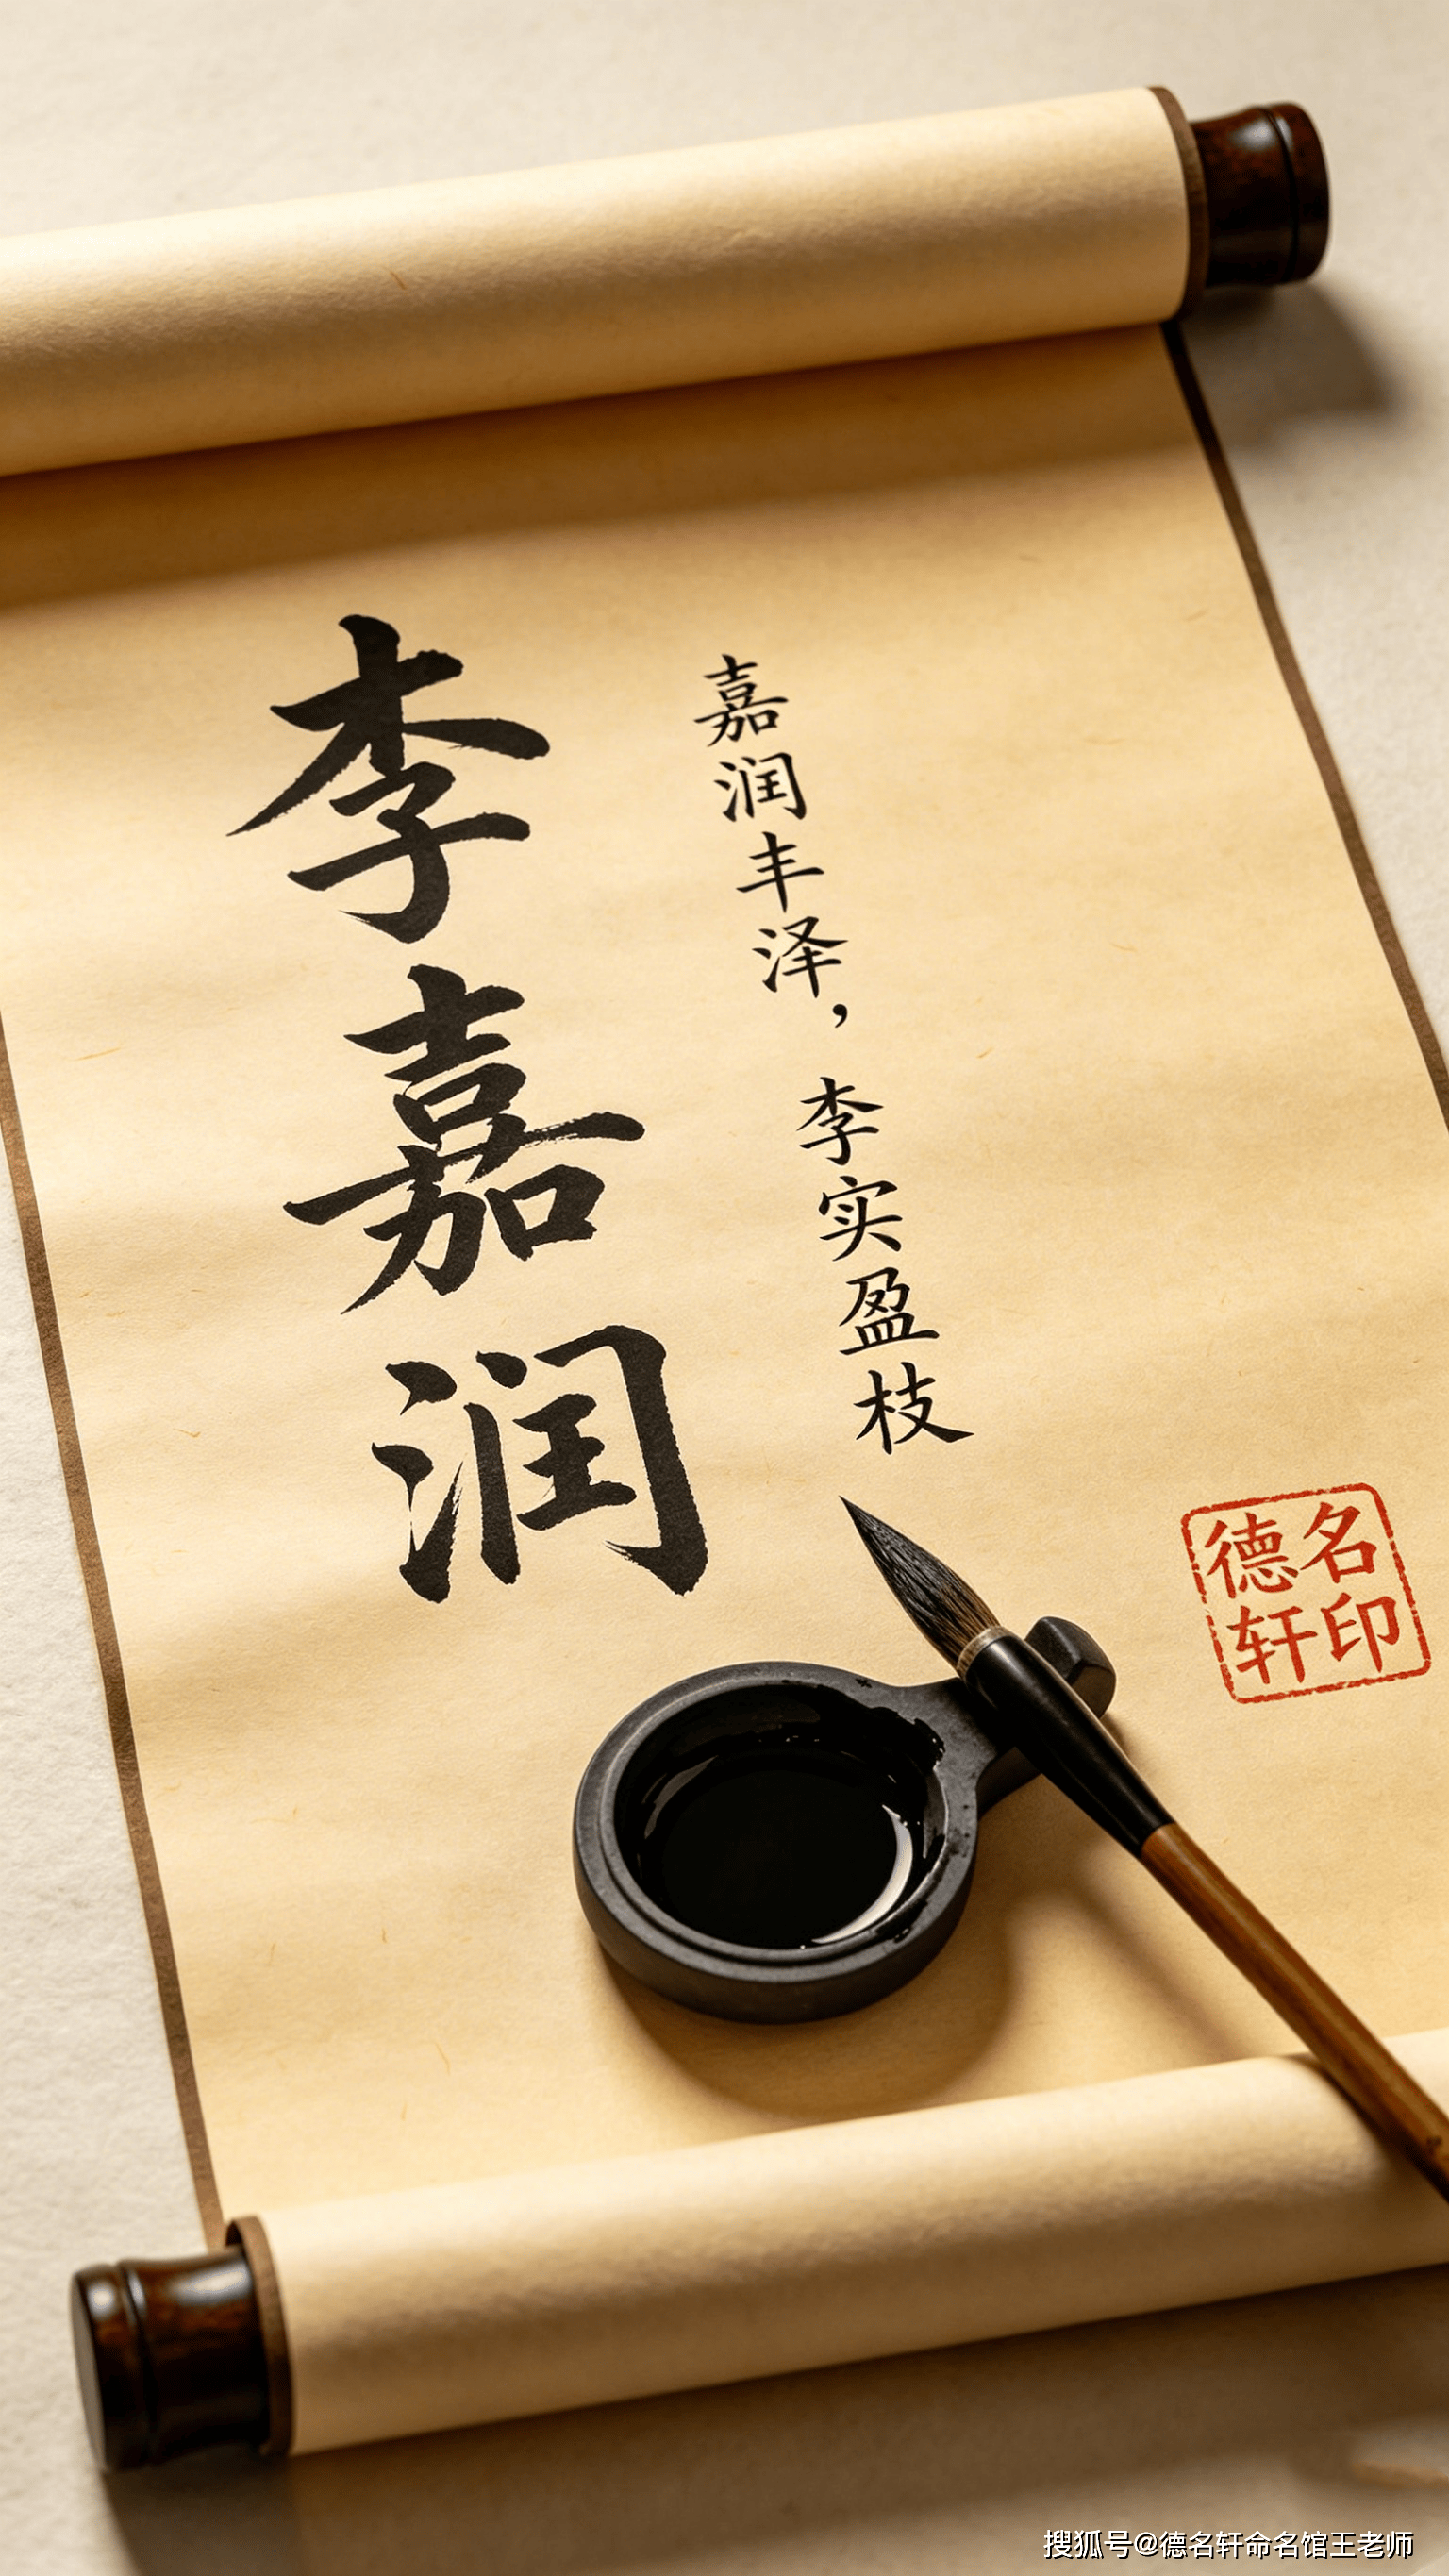 李嘉润
嘉润丰泽，李实盈枝
德名
轩印
搜狐号@德名轩命名馆王老师